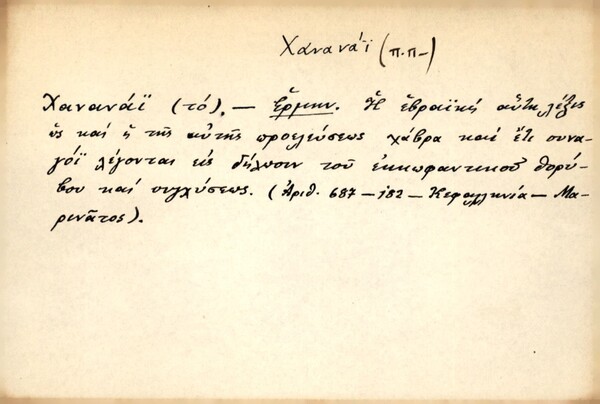 Χανανάϊ (π.π-)
Χανανάϊ (τό), — Ἑρμην. Ἡ ἑβραϊκή αὕτη λέξις
ὡς καί ἡ τῆς αὐτῆς προελεύσεως χάβρα καί ἔτι συνα-
γόϊ λέγονται εἰς δήλωσιν τοῦ ἐκκωφαντικοῦ θορύ-
βου καί συγχύσεως. (Ἀριθ. 687 — 182 — Κεφαλληνία — Μα-
ρινᾶτος).